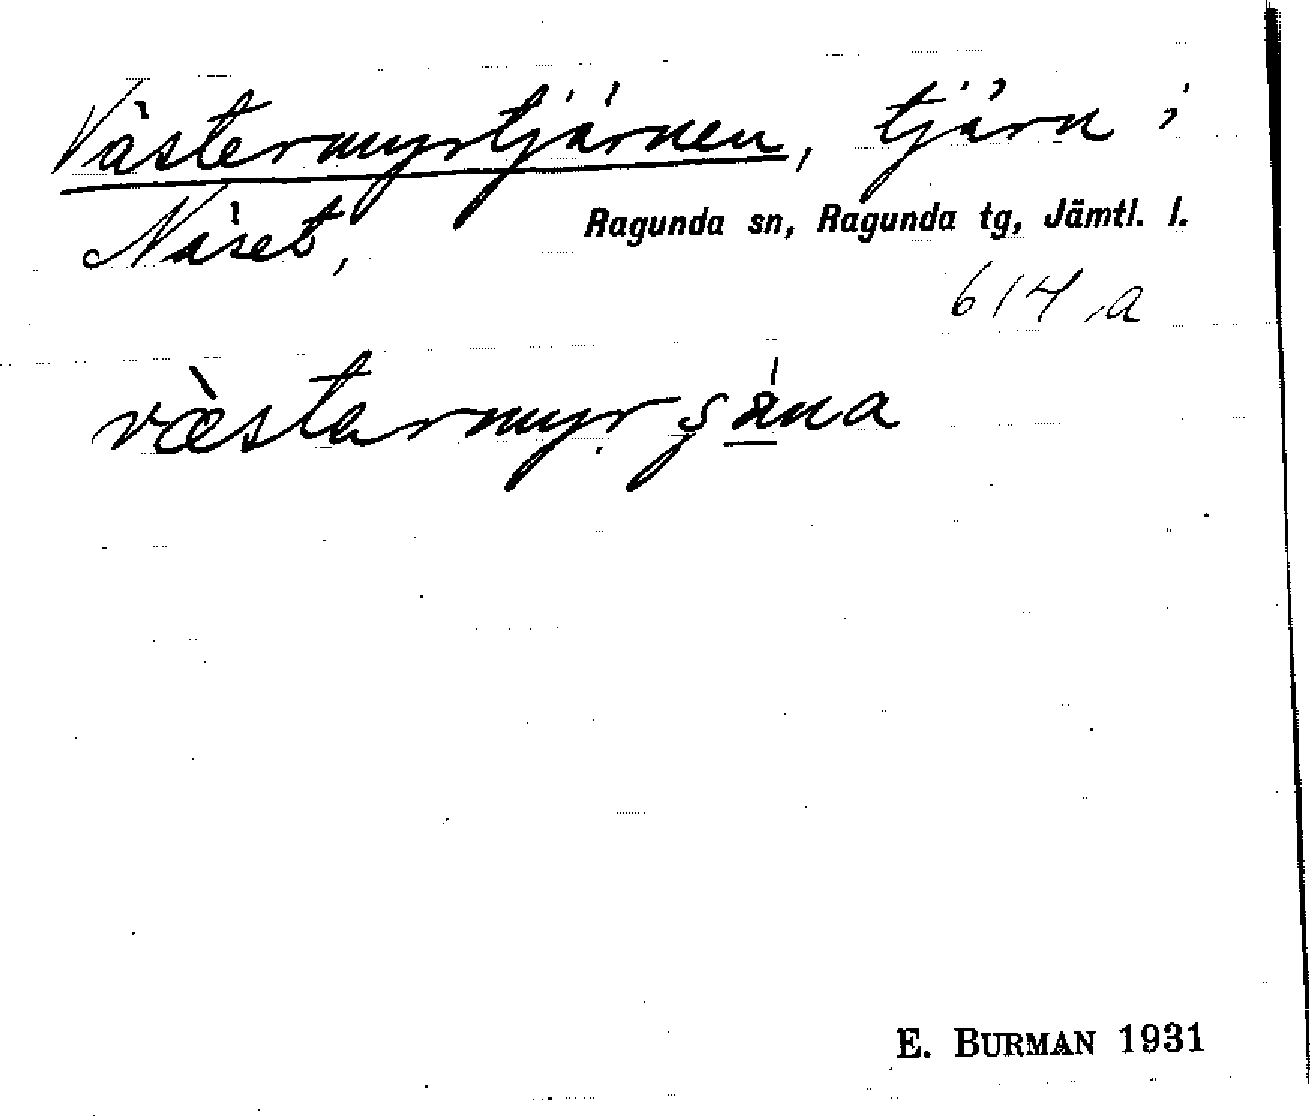 Västermyrtjärnen, tjärn i
Näset,
Ragunda sn, Ragunda tg, Jämtl. l.
614 a
E. BURMAN 1931